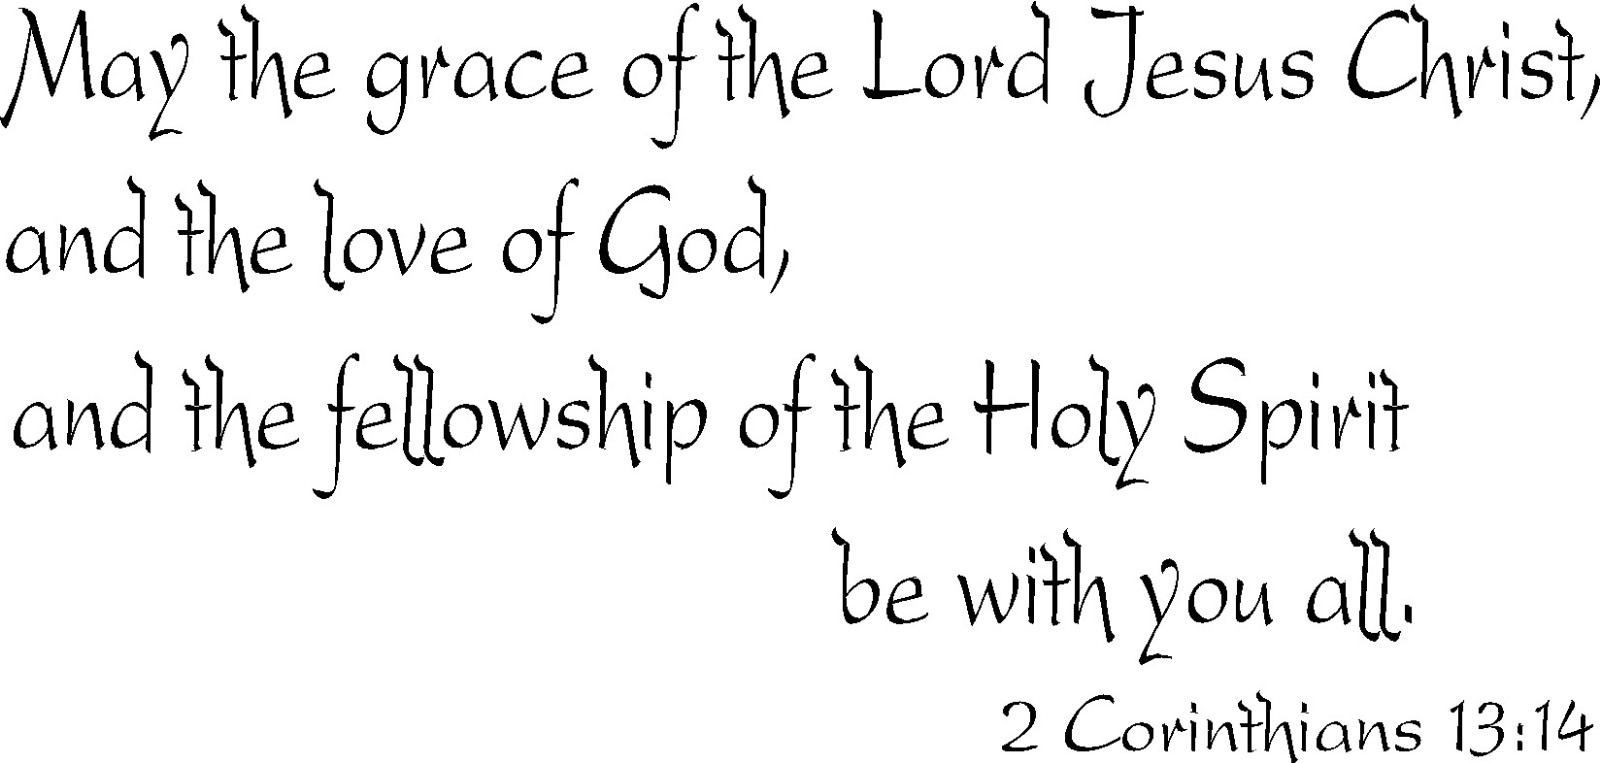 May the grace of the Lord Jesus Christ,
and the love of God,
and the fellowship of the Holy Spirit
be with you all.
2 Corinthians 13:14